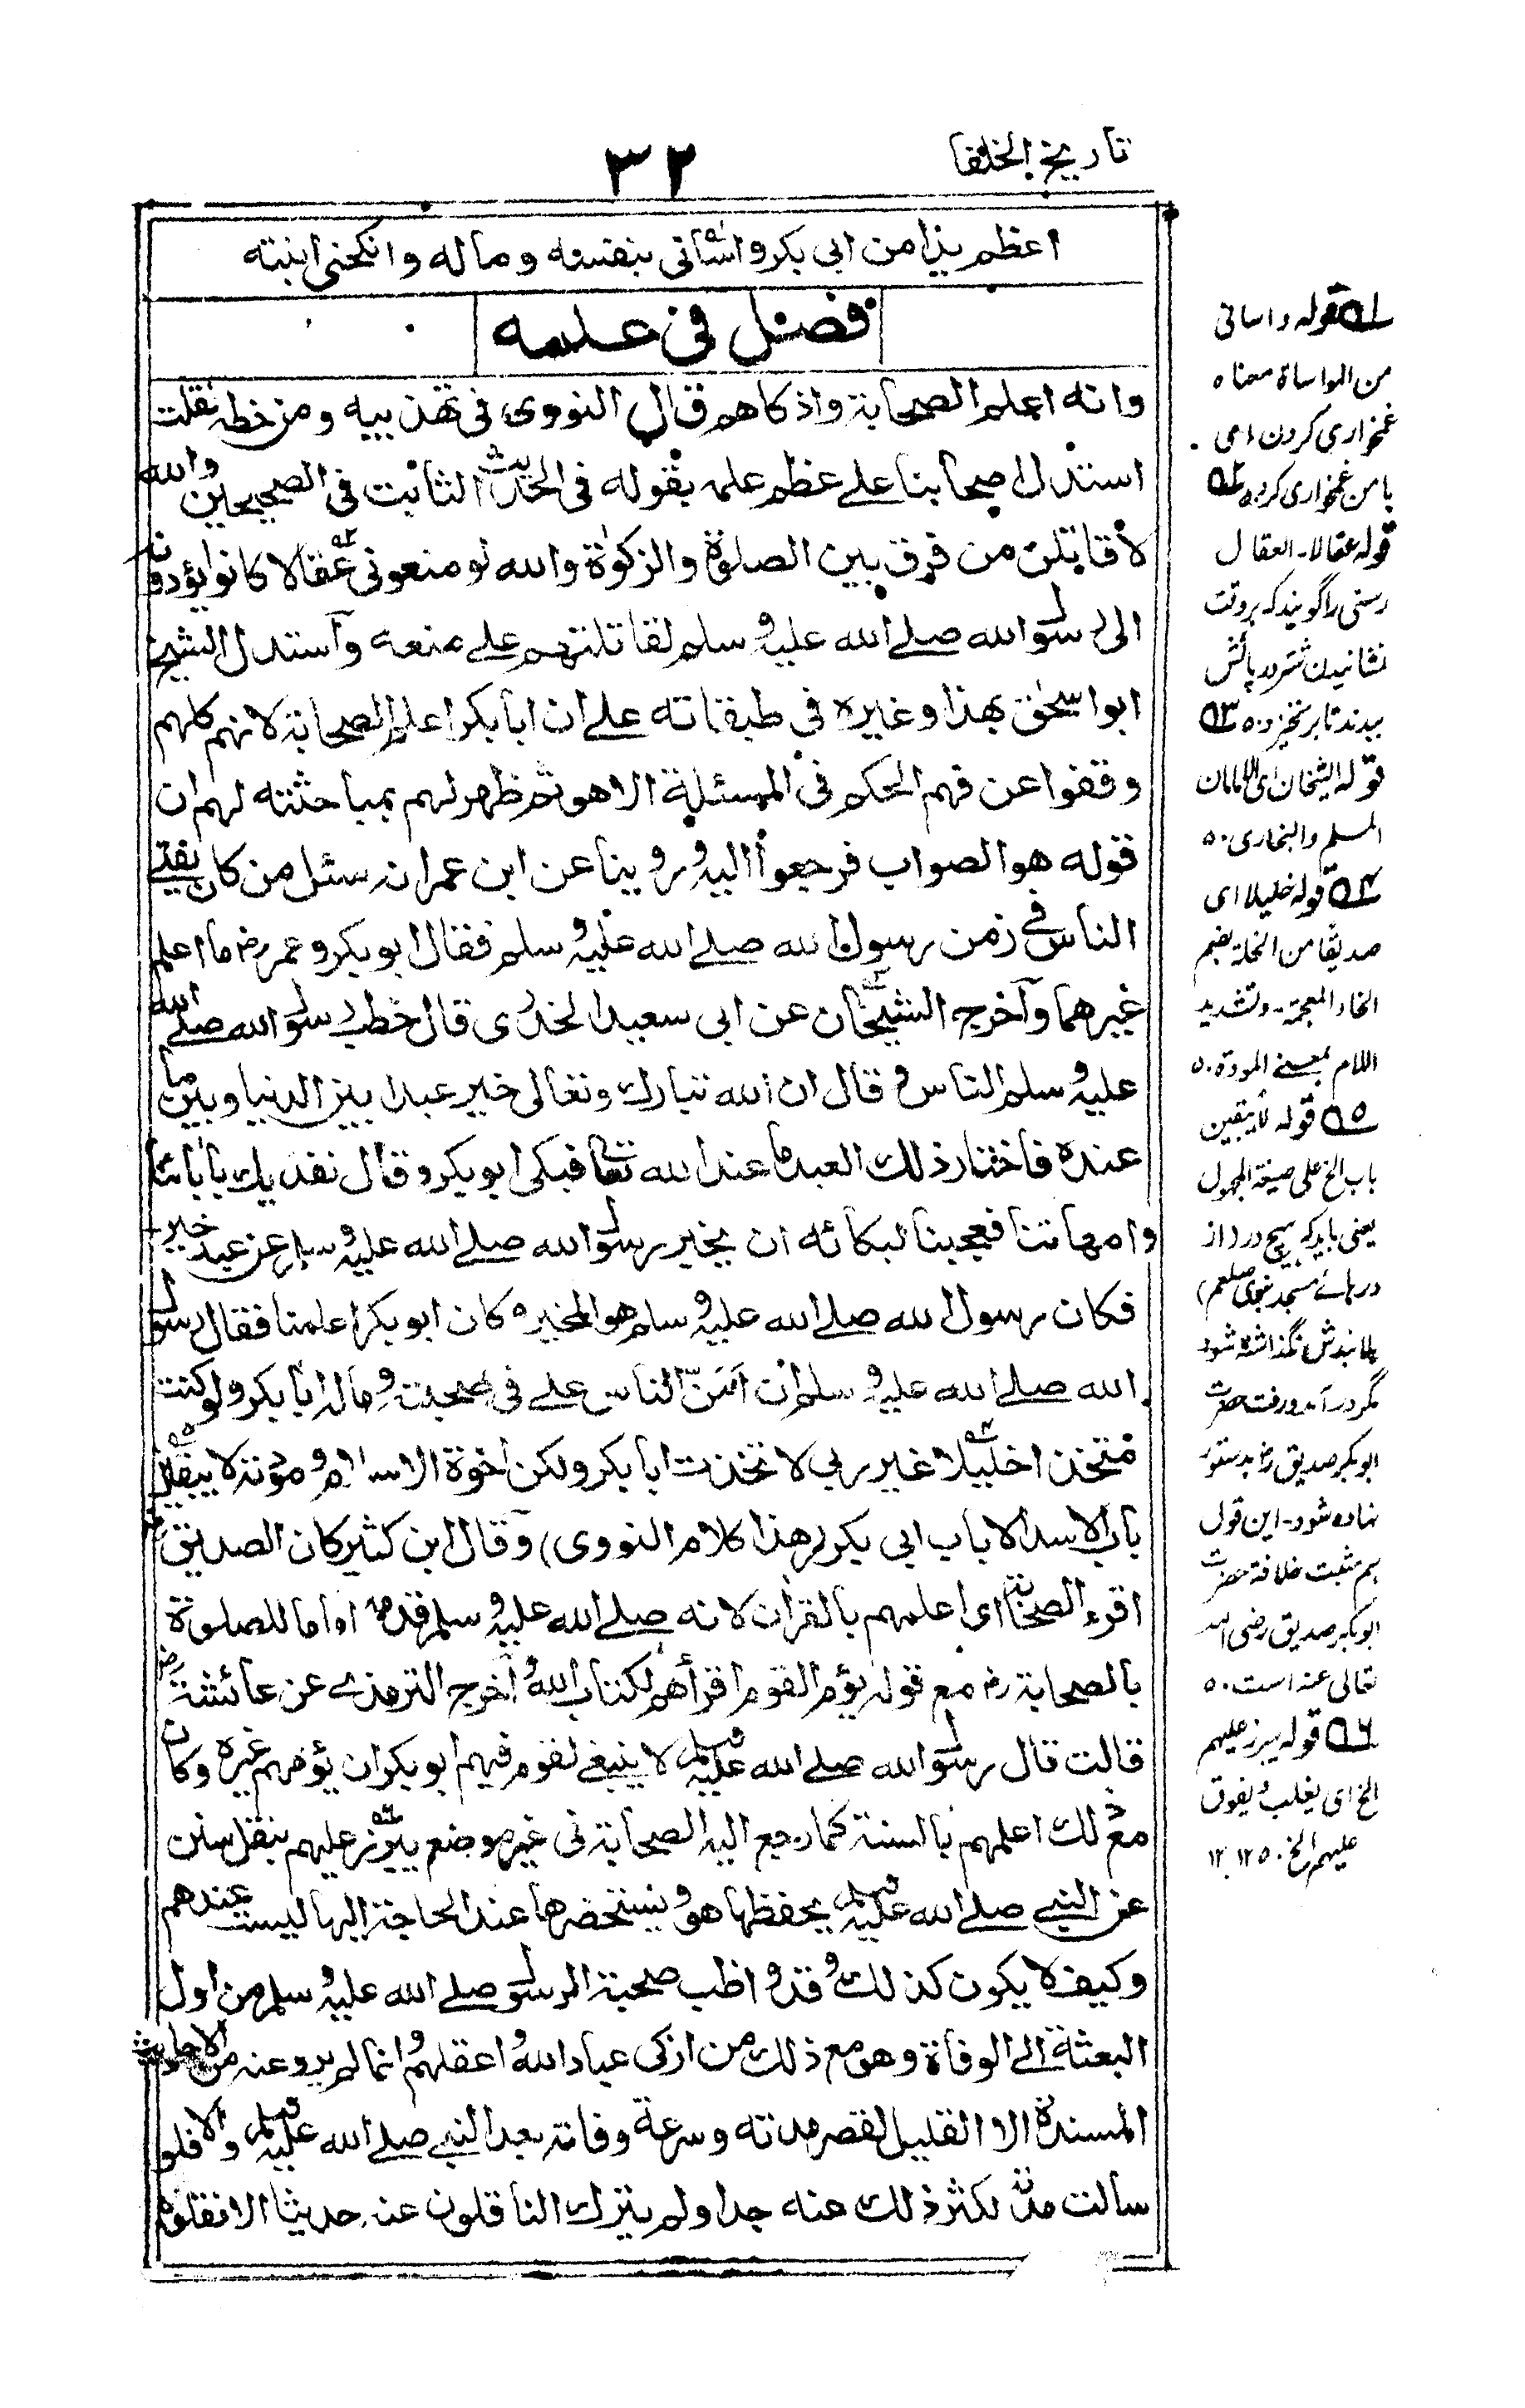 تاريخ الخلفا
٣٢
اعظم يدا من ابى بكر واسانى بنفسه وماله وانكحنى ابنته
فصل فى علمه
وانه اعلم الصحابة واذكاهم قال النووى فى تهذيبه ومن خطه نقلت
استدل اصحابنا على عظم علمه بقوله فى الحديث الثابت فى الصحيحين والله
لاقاتلن من فرق بين الصلوة والزكوة والله لو منعونى عقالا كانوا يؤدونه
الى رسول الله صلے الله عليه وسلم لقاتلتهم على منعه وآستدل الشيخ
ابو اسحق بهذا وغيره فى طبقاته على ان ابا بكر اعلم الصحابة لانهم كلهم
وقفوا عن فهم الحكم فى المسئلة الا هو ثم ظهر لهم بمباحثته لهم ان
قوله هو الصواب فرجعوا اليه وروينا عن ابن عمر انه سئل من كان يفتے
الناس فے زمن رسول الله صلے الله عليه وسلم فقال ابو بكر وعمر رض ما اعلم
غيرهما وآخرج الشيخان عن ابى سعيد الخدرى قال خطب رسول الله صلے الله
عليه وسلم الناس وقال ان الله تبارك وتعالى خير عبدا بين الدنيا وبين ما
عنده فاختار ذلك العبد ما عند الله تعا فبكى ابو بكر وقال نفديك بابائنا
وامهاتنا فعجبنا لبكائه ان يخبر رسول الله صلے الله عليه وسلم عن عبد خير
فكان رسول الله صلے الله عليه وسلم هو المخير وكان ابو بكر اعلمنا فقال رسول
الله صلے الله عليه وسلم ان امنّ الناس علے فى صحبته وماله ابا بكر ولو كنت
متخذا خليلا غير ربى لاتخذت ابا بكر ولكن اخوة الاسلام ومودته لا يبقين
باب الا سد الا باب ابى بكر (هذا كلام النووى) وقال ابن كثير كان الصديق رض
اقرء الصحابة اى اعلمهم بالقران لانه صلے الله عليه وسلم قدمه اماما للصلوة
بالصحابة رض مع قوله يؤم القوم اقرأهم لكتاب الله وآخرج الترمذے عن عائشة رض
قالت قال رسول الله صلے الله عليه وسلم لا ينبغے لقوم فيهم ابو بكر ان يؤمهم غيره وكان
مع ذلك اعلمهم بالسنة كما رجع اليه الصحابة فى غير موضع يبرز عليهم بنقل سنن
عن النبے صلے الله عليه وسلم يحفظها هو ويستحضرها عند الحاجة اليها ليست عندهم
وكيف لا يكون كذلك وقد واظب صحبة الرسول صلے الله عليه وسلم من اول
البعثة الے الوفاة وهو مع ذلك من ازكى عباد الله واعقلهم وانما لم يرو عنه من الاحاديث
المسندة الا القليل لقصر مدته وسرعة وفاته بعد النبے صلے الله عليه وسلم والا فلو
سالت مدته لكثر ذلك عنه جدا ولم يترك الناقلون عنه حديثا الا نقلوه
١ قوله واسانى
من المواساة معناه
غمخوارى كردن اى
با من غمخوارى كرد ٢
قوله عقالا۔ العقال
رسنى را گويند كه بروقت
نشانيدن شتر در پائش
بيندند تا بر نخيزد ٣
قوله الشيخان اى الامامان
المسلم والبخارى
٤ قوله خليلا اى
صديقا من الخلة بضم
الخاء المعجمة۔ وتشديد
اللام بمعنے المودة
٥ قوله لا يبقين
باب الخ على صيغة المجهول
يعنى بايد كه هيچ در (از
درهائے مسجد نبوى صلعم)
بلا بندش نگذاشته شود
مگر در آمد ورفت حضرت
ابوبكر صديق رض بدستور
نهاده شود۔ اين قول
هم مثبت خلافة حضرت
ابوبكر صديق رضى الله
تعالى عنه است
٦ قوله يبرز عليهم
الخ اى يغلب ويفوق
عليهم الخ ١٢